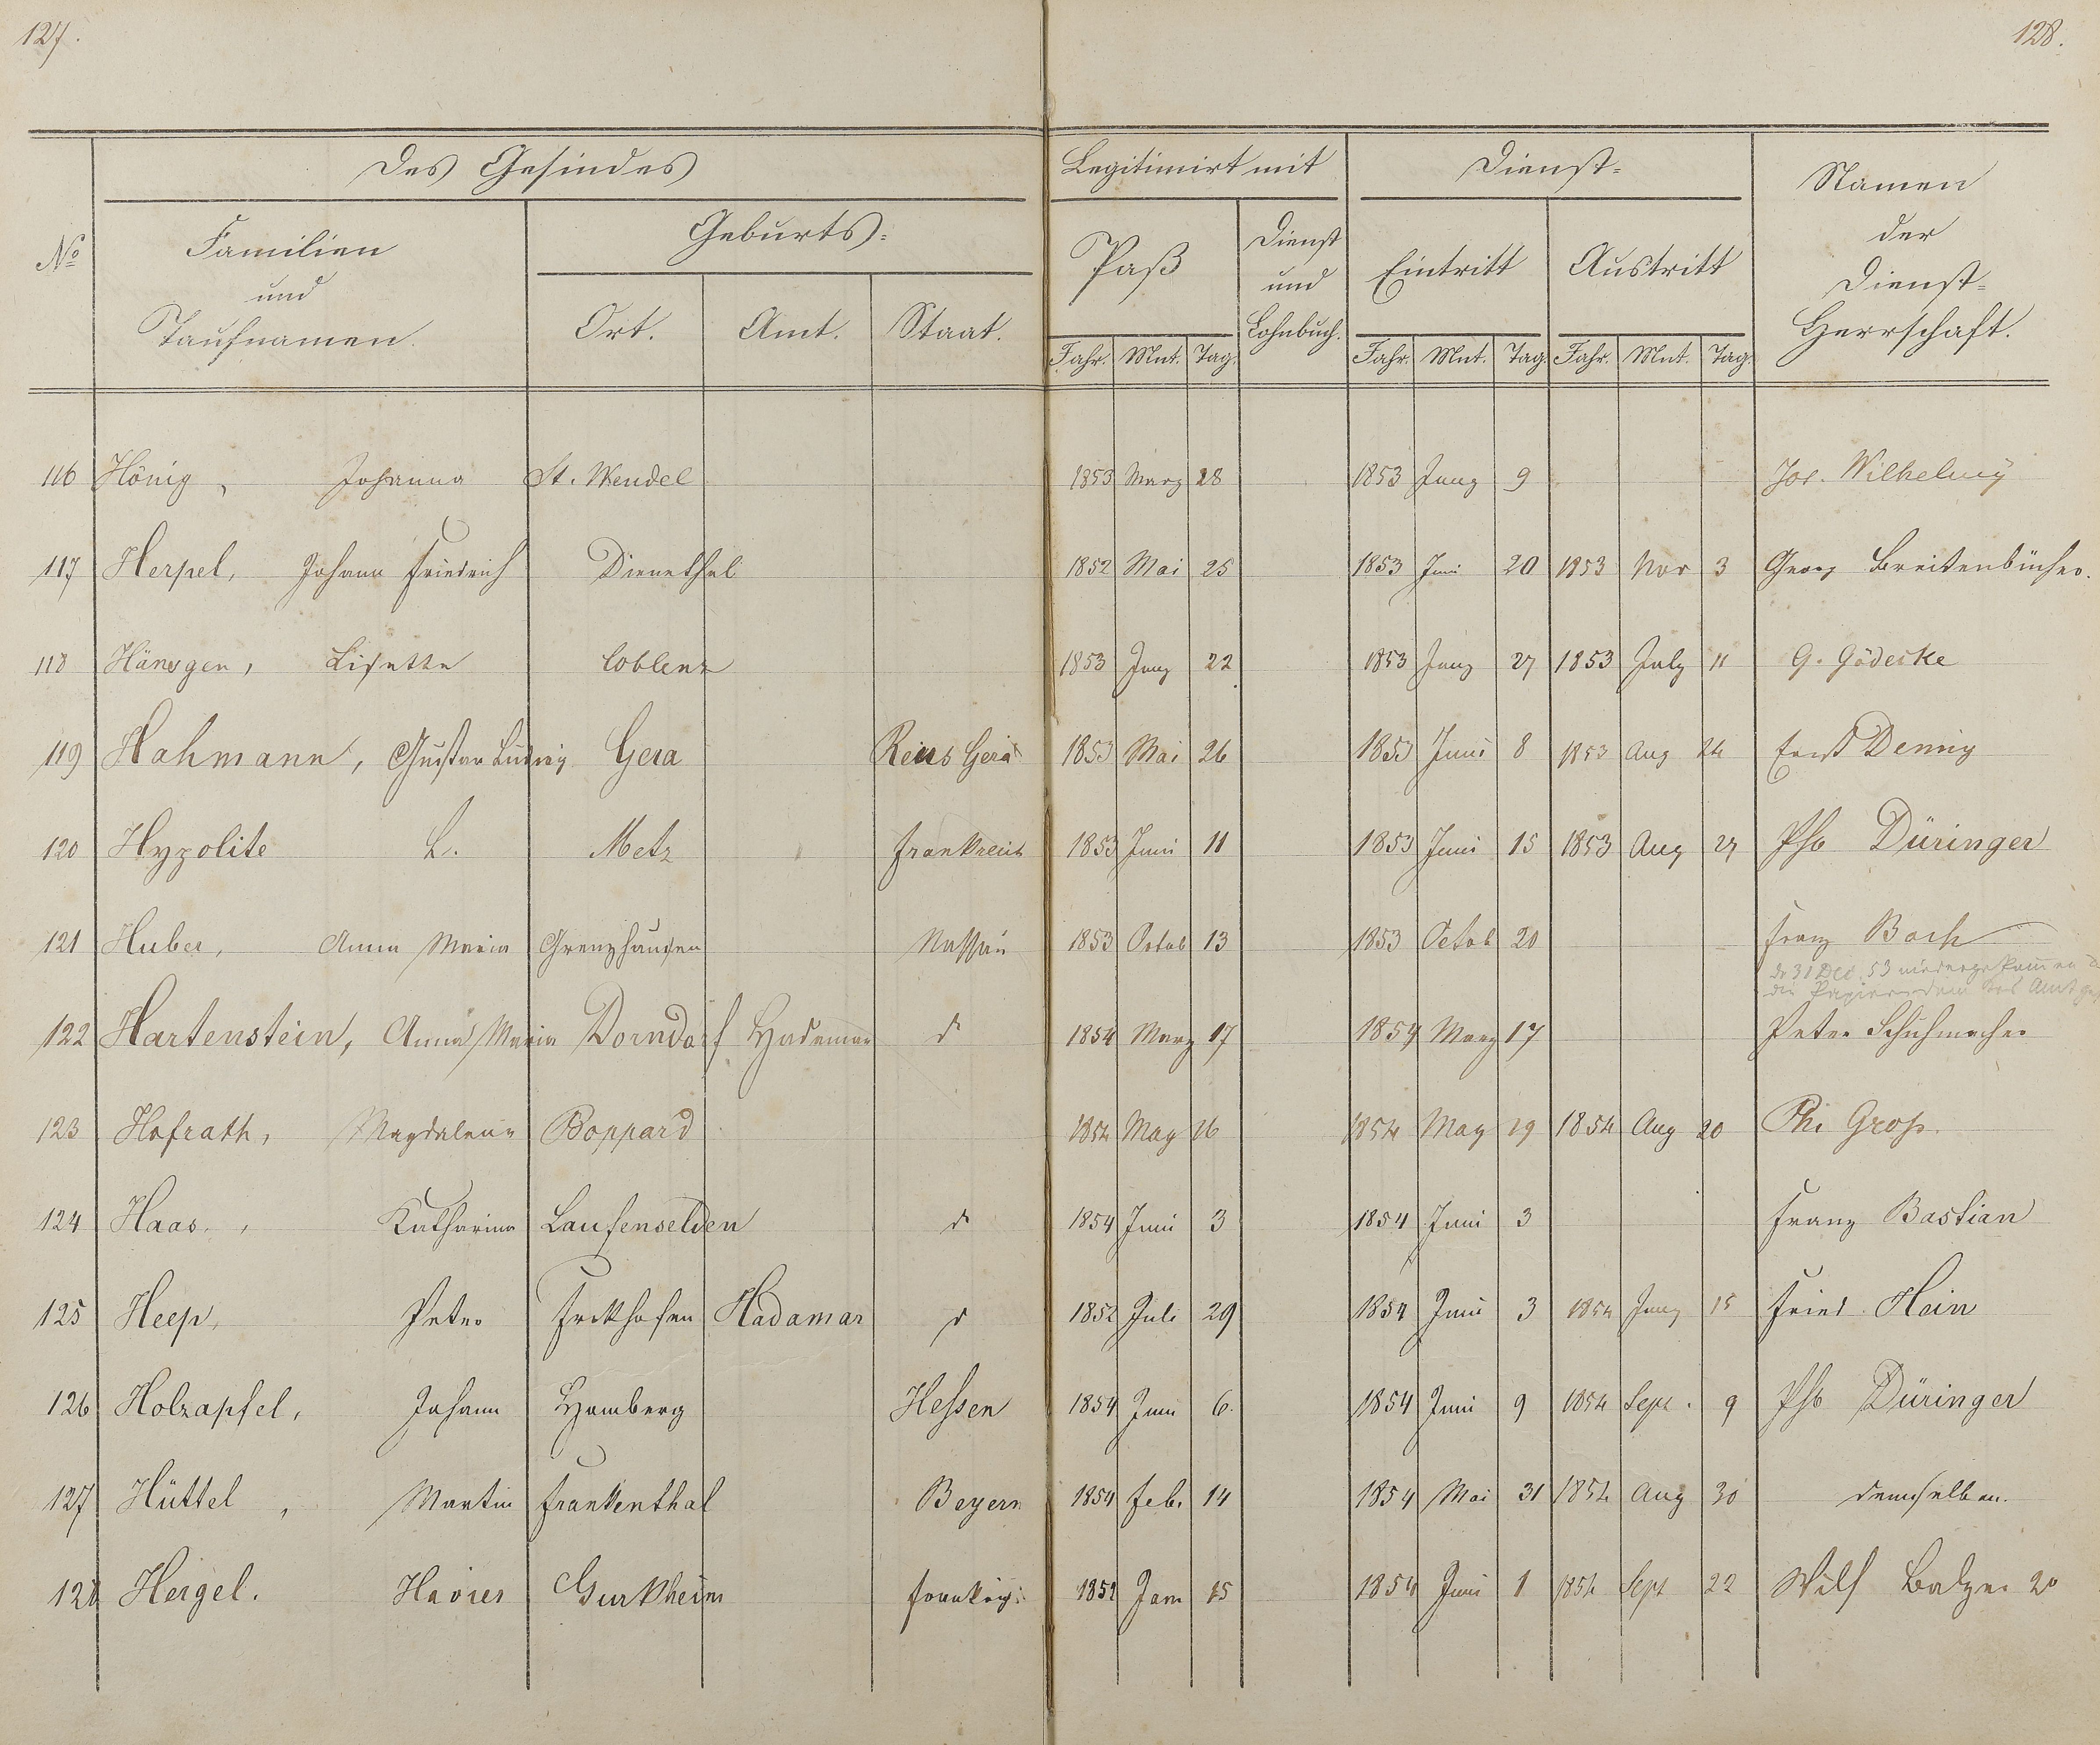 127.
128.
Des Gesindes
Legitimirt mit
Dienst-
Namen der Dienst-Herrschaft.
No
Familien und Taufnamen.
Geburts-
Paß
Dienst und Lohnbuch.
Eintritt
Austritt
Ort. Amt. Staat.
Jahr. Mnt. Tag. Jahr. Mnt. Tag. Jahr. Mnt. Tag.
116 Hönig, Johanna St. Wendel 1853 März 28 1853 Juny 9 Jos. Wilhelmy
117 Herpel, Johann Friedrich Dienethal 1852 Mai 25 1853 Juni 20 1853 Nov 3 Georg Breitenbücher.
118 Hänsgen, Lisette Coblenz 1853 Juny 22 1853 Juny 27 1853 July 11 G. Gödecke
119 Hahmann, Gustav Ludwig Gera Reus Gera 1853 Mai 26 1853 Juni 8 1853 Aug 24 Ernst Denny
120 Hypolite L. Metz Frankreich 1853 Juni 11 1853 Juni 15 1853 Aug 27 Phb Düringer
121 Huber, Anna Maria Grenzhausen Nassau 1853 Octob 13 1853 Octob 20 Franz Bach
d 31 Dec. 53 niedergekommen
die Papiere dem Amt
122 Hartenstein, Anna Maria Dorndorf Hadamar d 1854 März 17 1854 März 17 Peter Schuhmacher
123 Hofrath, Magdalena Boppard 1854 May 16 1854 May 19 1854 Aug 20 Phi Groß.
124 Haas, Katharina Laufenselden d 1854 Juni 3 1854 Juni 3 Franz Bastian
125 Heep, Peter Frickhofen Hadamar d 1852 Juli 29 1854 Juni 3 1854 Juny 15 Fried. Hein
126 Holzapfel, Johann Homberg Hessen 1854 Juni 6. 1854 Juni 9 1854 Sept. 9 Phb Düringer
127 Hüttel, Martin Frankenthal Beyern 1854 Feb. 14 1854 Mai 31 1854 Aug 30 demselben.
128 Hergel. Havier Gurkheim Frankr: 1852 Jan 15 1854 Juni 1 1854 Sept 22 Wilh Balzer